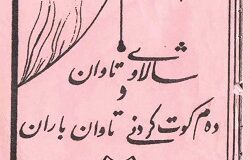 شالاوی تاوان
و
دەم کوت کردنی تاوان باران